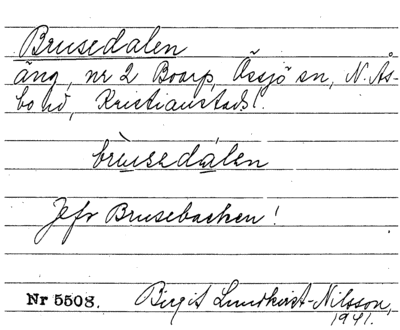 Brusedalen
äng, nr 2 Boarp, Össjö sn, N. Ås-
bo hd, Kristianstads l.
brùsedálen
Jfr Brusebacken!
Nr 5508. Birgit Lundkvist-Nilsson,
1941.